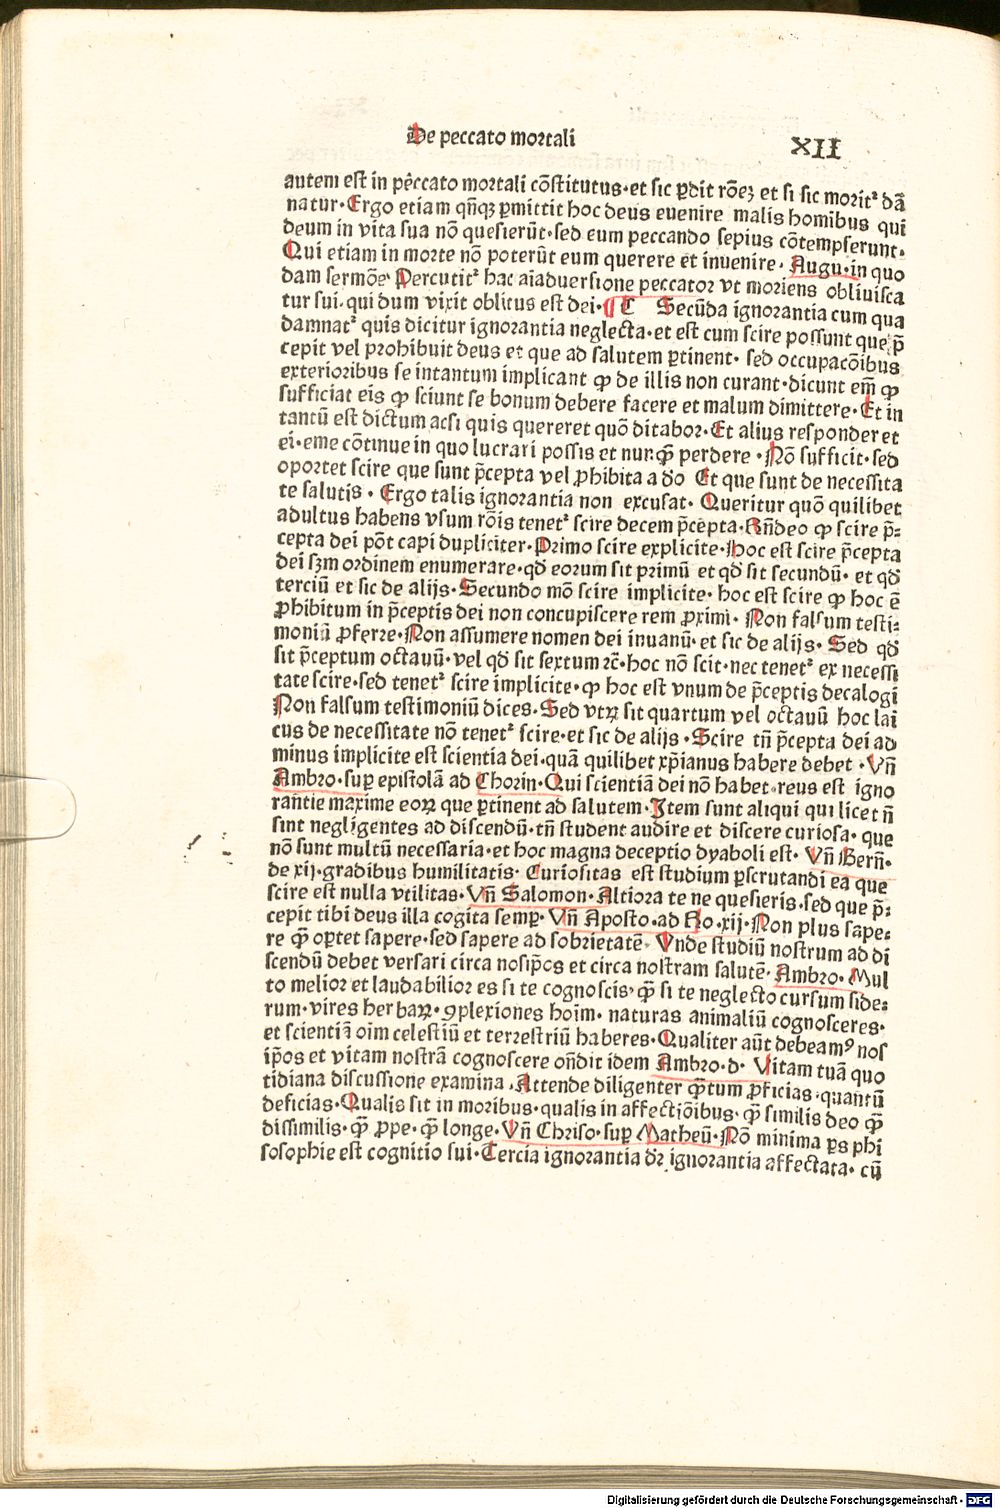 De peccato mortali
XII
autem est in pēccato mortali cōstitutus·et sic ꝑdit rōeꝫ et si sic moritᷣ dā
natur·Ergo etiam qn̄qꝫ ꝑmittit hoc deus euenire malis hominbus qui
deum in vita sua nō quesierūt·sed eum peccando sepius cōtempserunt·
Qui etiam in morte nō poterūt eum querere et inuenire· Augu·in quo
dam sermōe· Percutitᷣ hac aīaduersione peccator vt moriens obliuisca
tur sui·qui dum vixit oblitus est dei·¶ C Secūda ignorantia cum qua
damnatᷣ quis dicitur ignorantia neglecta·et est cum scire possunt que p̄
cepit vel prohibuit deus et que ad salutem ꝑtinent· sed occupacōibus
exterioribus se intantum implicant ꝙ de illis non curant·dicunt em̄ ꝙ
sufficiat eis ꝙ sciunt se bonum debere facere et malum dimittere·Et in
tantū est dictum acsi quis quereret quō ditabor·Et alius responder et
ei·eme cōtinue in quo lucrari possis et nunqꝫ̄ perdere ·Nō sufficit·sed
oportet scire que sunt p̄cepta vel ꝓhibita a do Et que sunt de necessita
te salutis· Ergo talis ignorantia non excusat· Queritur quō quilibet
adultus habens vsum rōis tenetᷣ scire decem p̄cepta·Rn̄deo ꝙ scire p̄⸗
cepta dei pōt capi dupliciter·Primo scire explicite·Hoc est scire p̄cepta
dei sꝫm ordinem enumerare·qđ eorum sit primū et qđ sit secundū· et qđ
terciū et sic de alijs·Secundo mō scire implicite· hoc est scire ꝙ hoc ē
ꝓhibitum in p̄ceptis dei non concupiscere rem ꝓximi· Non falsum testi⸗
moniū ꝓferre·Non assumere nomen dei inuanū·et sic de alijs· Sed qđ
sit p̄ceptum octauū·vel qđ sit sextum ꝛc̄·hoc nō scit·nec tenetᷣ ex necessi
tate scire·sed tenetᷣ scire implicite·ꝙ hoc est vnum de p̄ceptis decalogi
Non falsum testimoniū dices·Sed vtꝝ sit quartum vel octauū hoc lai
cus de necessitate nō tenetᷣ scire·et sic de alijs·Scire tn̄ p̄cepta dei ad
minus implicite est scientia dei·quā quilibet xp̄ianus habere debet ·Vn̄
Ambro·suꝑ epistolā ad Chorin·Qui scientiā dei nō habet·reus est igno
rantie maxime eoꝝ que ꝑtinent ad salutem·Item sunt aliqui qui licet n̄
sint negligentes ad discendū·tn̄ student audire et discere curiosa· que
nō sunt multū necessaria·et hoc magna deceptio dyaboli est· Vn̄ Bern̄·
de xij·gradibus humilitatis· Curiositas est studium ꝑscrutandi ea que
scire est nulla vtilitas·Vn̄ Salomon·Altiora te ne quesieris·sed que p̄⸗
cepit tibi deus illa cogita semꝑ·Vn̄ Aposto·ad Ro·xij·Non plus sape⸗
re qꝫ̄ oꝑtet sapere·sed sapere ad sobrietatē· Vnde studiū nostrum ad di
scendū debet versari circa nosip̄os et circa nostram salutē·Ambro·Mul
to melior et laudabilior es si te cognoscis, qꝫ̄ si te neglecto cursum side⸗
rum·vires herbaꝝ·ꝯplexiones hoīm· naturas animaliū cognosceres·
et scientiā oīm celestiū et terrestriū haberes·Qualiter aūt debeamꝰ nos
ip̄os et vitam nostrā cognoscere on̄dit idem Ambro·d· Vitam tuā quo
tidiana discussione examina·Attende diligenter qꝫ̄tum ꝓficias·quantū
deficias·Qualis sit in moribus·qualis in affectiōibus· qꝫ̄ similis deo qꝫ̄
dissimilis·qꝫ̄ ꝓpe·qꝫ̄ longe·Vn̄ Chriso·suꝑ Matheū·Nō minima ꝑs phi
sosophie est cognitio sui·Tercia ignorantia dr̄ ignorantia affectata· cū
Digitalisierung gefördert durch die Deutsche Forschungsgemeinschaft - DFG